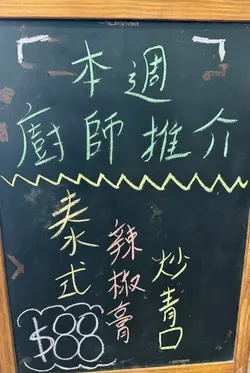 本週
廚師推介
泰式
辣椒膏
炒青口
$88